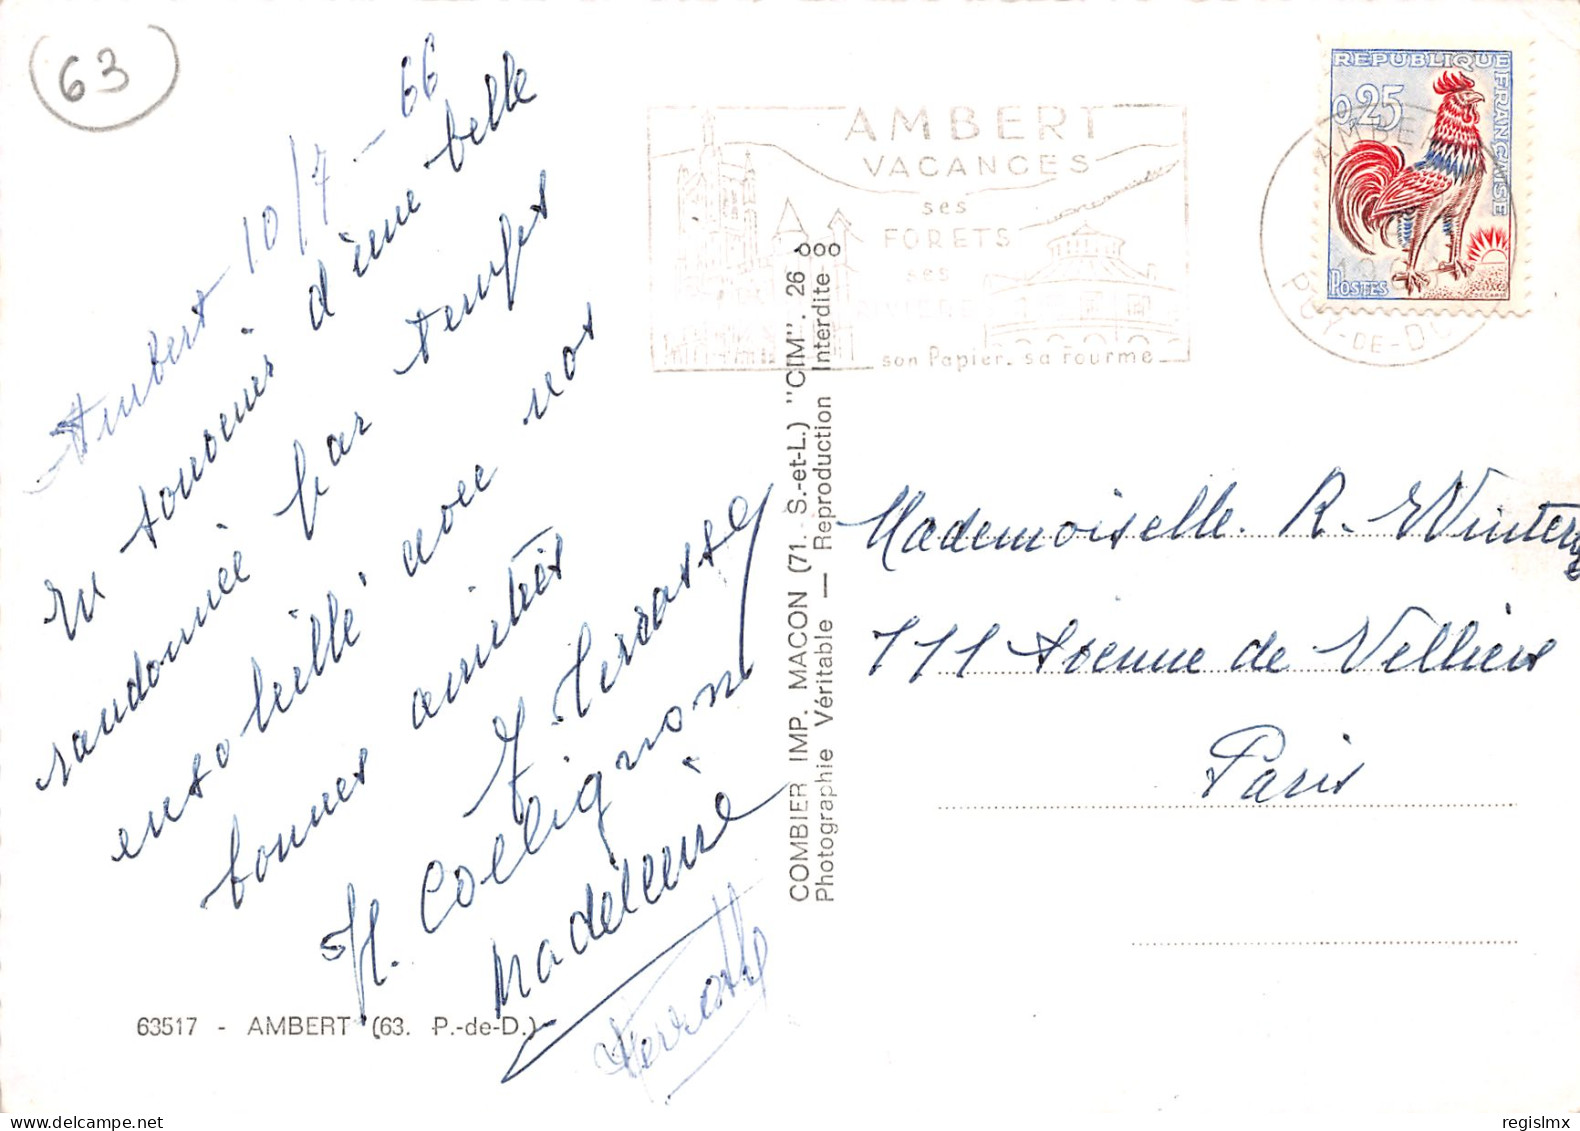 63
Ambert 10/7-66
En souvenir d'une belle
randonnée par temps
ensoleillé avec nos
bonnes amitiés
H. Collignon
Madeleine
63517 - AMBERT (63. P.-de-D.)
COMBIER IMP. MACON (71. S.-et-L.) "CIM". 26
Photographie Véritable — Reproduction Interdite
AMBERT
VACANCES
ses
FORETS
ses
RIVIERES
son Papier. sa Fourme
REPUBLIQUE FRANÇAISE
0,25
POSTES
DECARIS
AMBERT
PUY-DE-DOME
Mademoiselle R.
111 Avenue de Velliers
Paris
regislmx